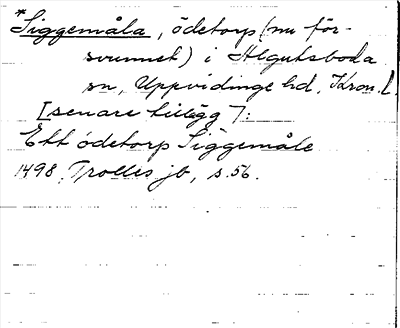 *Siggemåla, ödetorp (nu för-
svunnet) i Älgutsboda
sn, Uppvidinge hd, Kron. l.
[senare tillägg]:
Ett ödetorp Siggemåle
1498 Trolles jb, s. 56.